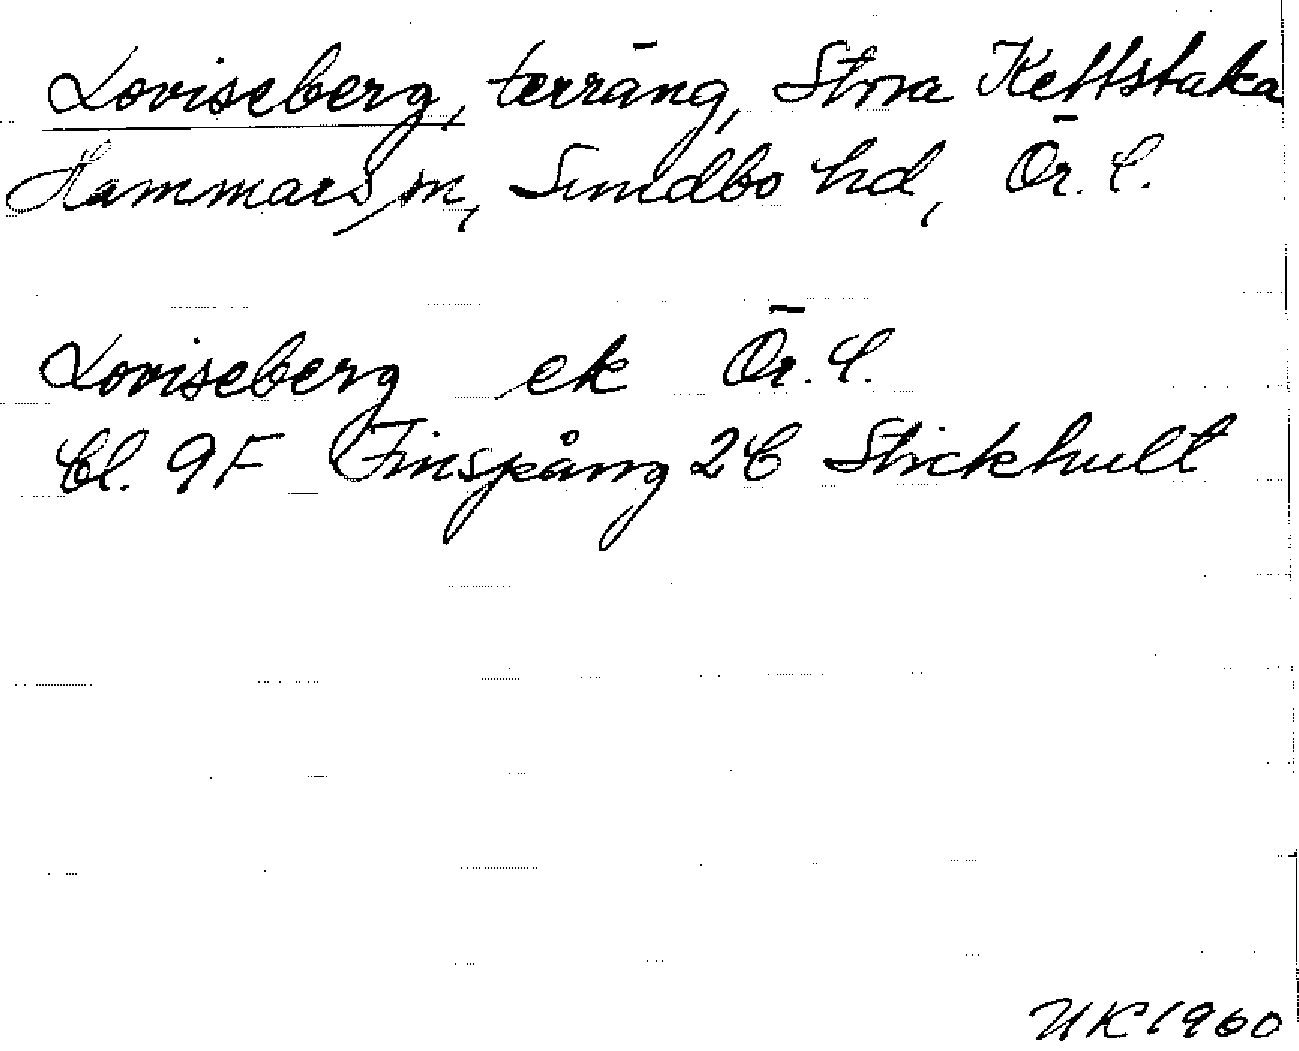 Loviseberg, terräng, Stora Kettstaka
Hammars sn, Sundbo hd, Ör. l.
Loviseberg ek Ör. l.
Bl. 9F Finspång 2b Stickhult
UK 1960